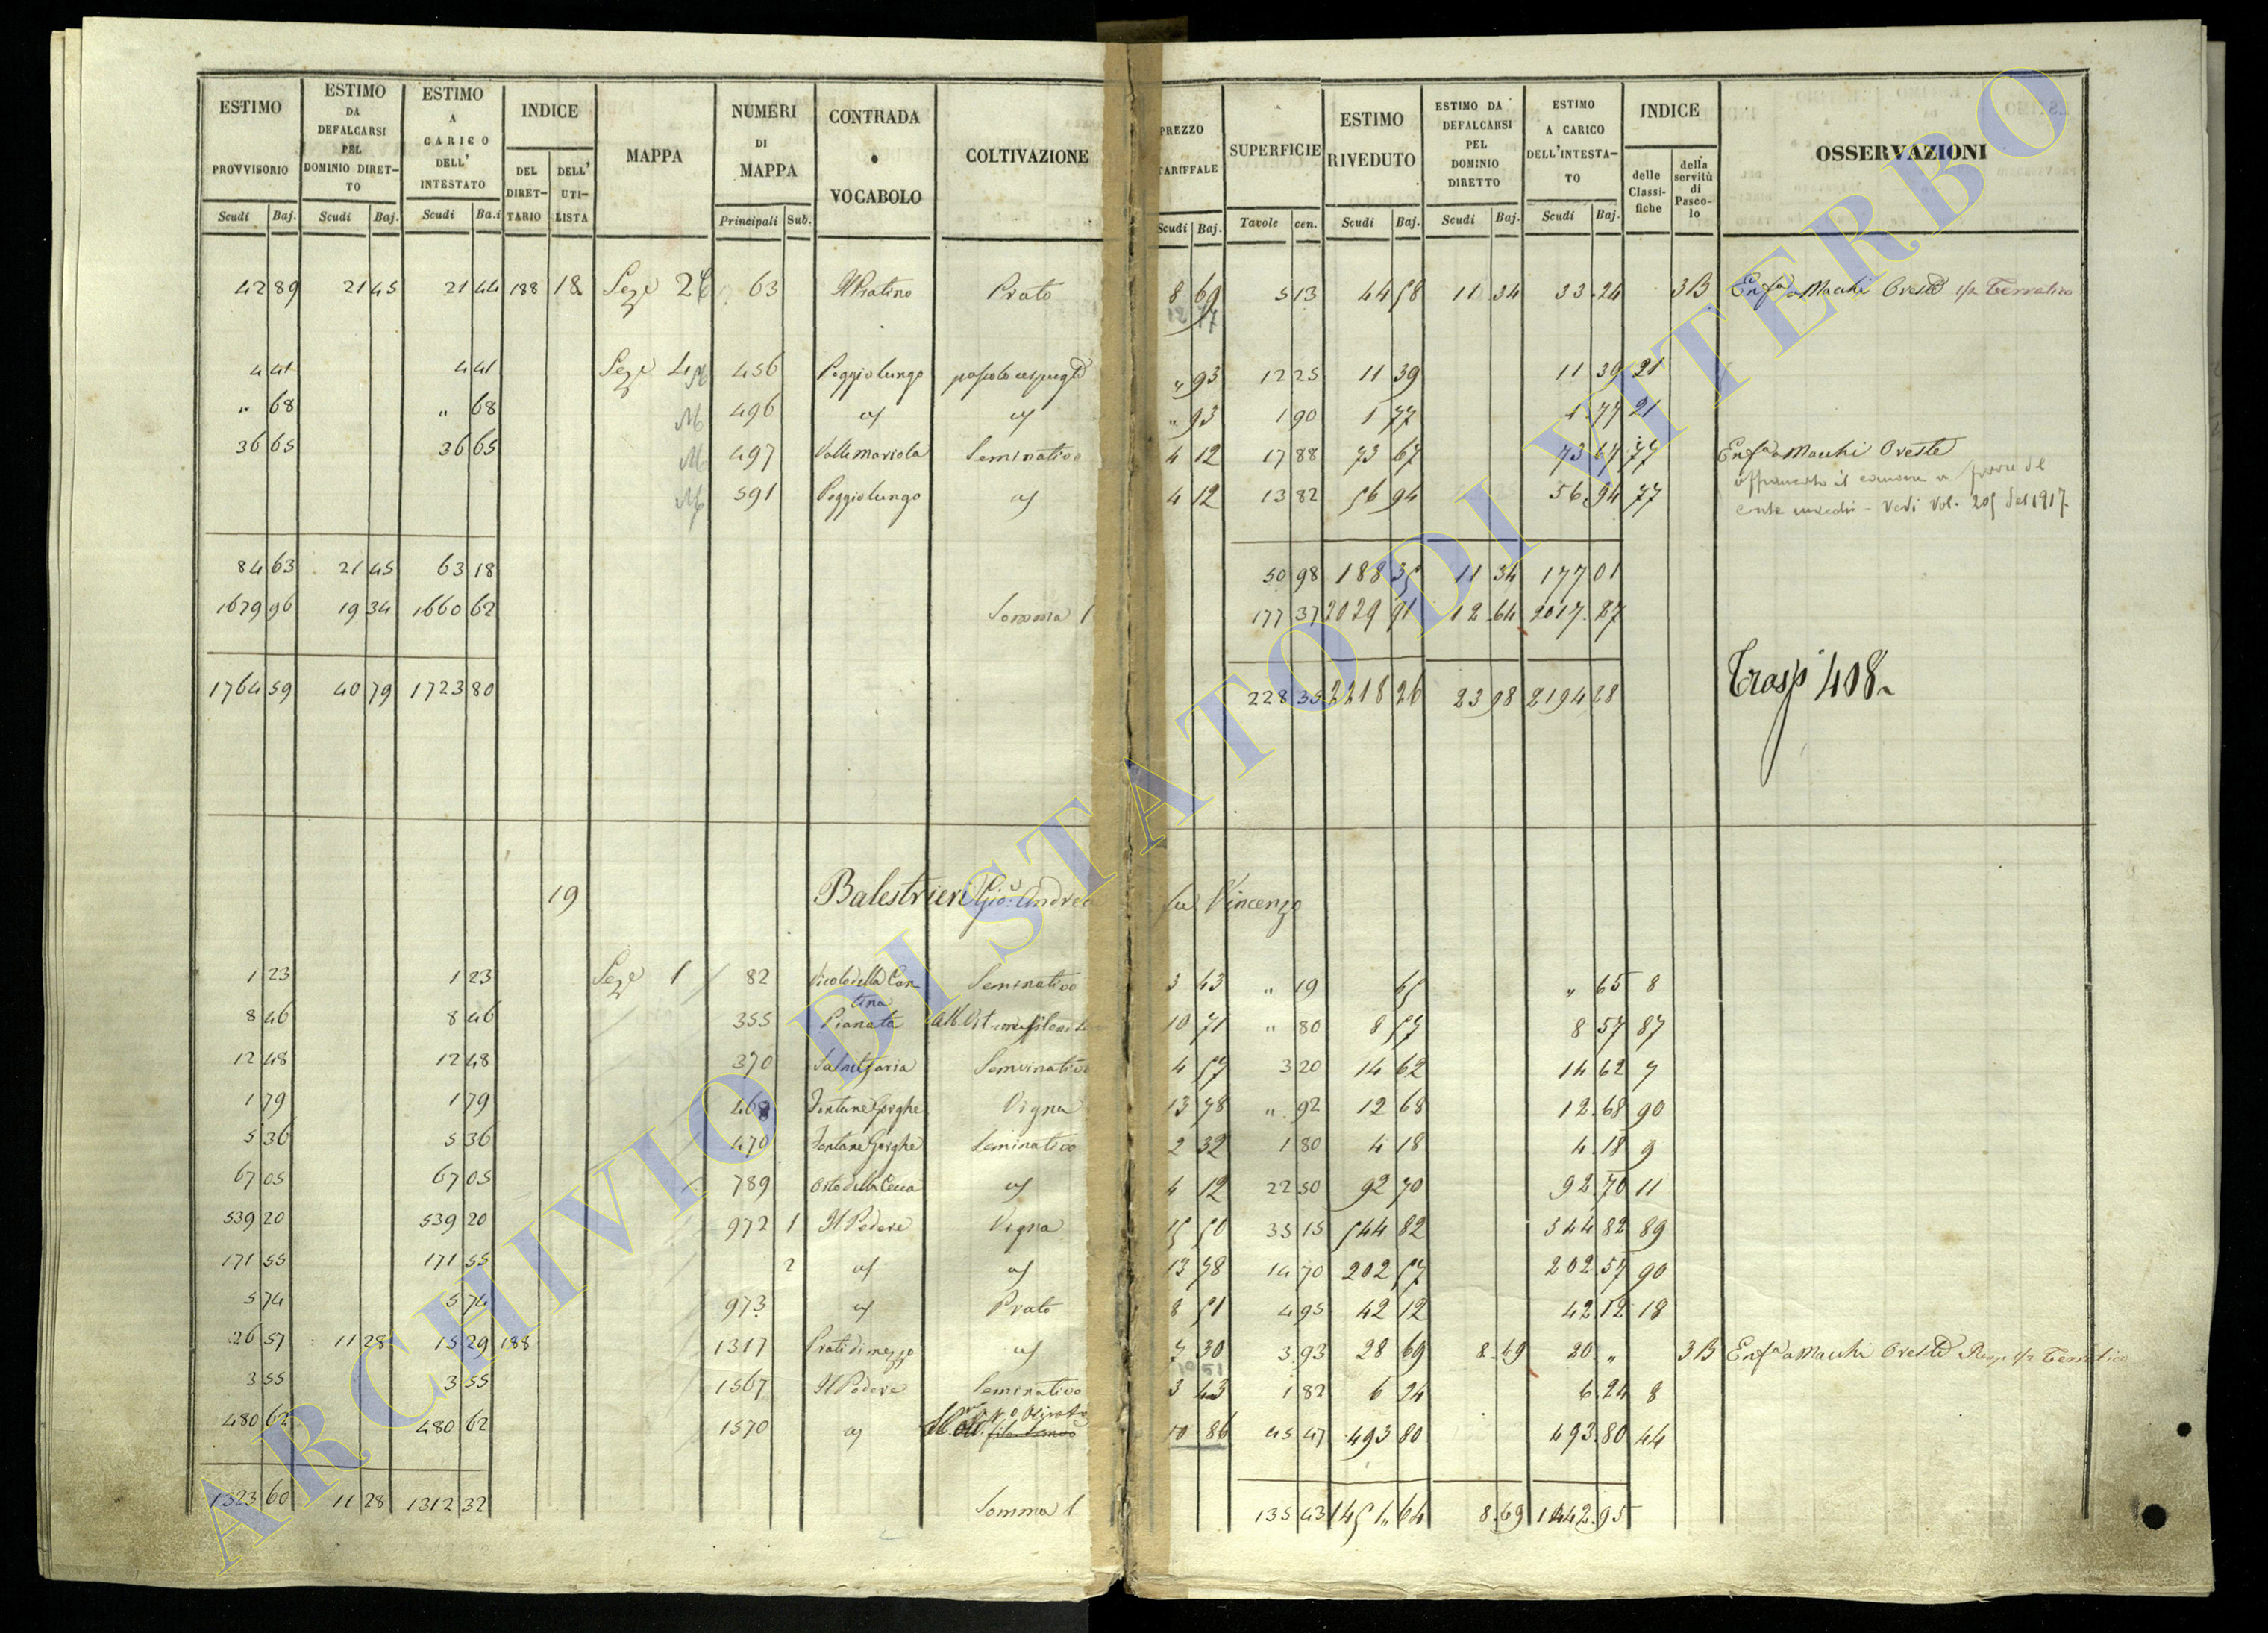 ESTIMO PROVVISORIO Scudi Baj. ESTIMO DA DEFALCARSI PEL DOMINIO DIRETTO Scudi Baj. ESTIMO A CARICO DELL' INTESTATO Scudi Ba.i INDICE DEL DIRETTARIO DELL' UTILISTA MAPPA NUMERI DI MAPPA Principali Sub. CONTRADA o VOCABOLO COLTIVAZIONE PREZZO TARIFFALE Scudi Baj. SUPERFICIE Tavole cen. ESTIMO RIVEDUTO Scudi Baj. ESTIMO DA DEFALCARSI PEL DOMINIO DIRETTO Scudi Baj. ESTIMO A CARICO DELL'INTESTATO Scudi Baj. INDICE delle Classifiche della servitù di Pascolo OSSERVAZIONI
42 89 21 45 21 44 188 18 Seze 2 63 Il Pratino Prato 8 69 5 13 44 58 11 34 33 24 3B Enfa a Macchi Oreste 1/2 Terratico
4 41 4 41 Seze 4 456 Poggio lungo " 93 12 25 11 39 11 39 21
" 68 " 68 496 " 93 1 90 1 77 1 77 21
36 65 36 65 497 Valle mariola Seminativo 4 12 17 88 73 67 73 67 77 Enfa a Macchi Oreste
591 Poggio lungo 4 12 13 82 56 94 56 94 77
Vedi Vol. 205 del 1917.
84 63 21 45 63 18 50 98 188 35 11 34 177 01
1679 96 19 34 1660 62 Somma 177 37 2029 91 12 64 2017 27
1764 59 40 79 1723 80 228 35 2218 26 23 98 2194 28 Trasp 408
19 Balestrieri Gio: Andrea fu Vincenzo
1 23 1 23 Seze 1 82 Vicolo della Cantina Seminativo 3 43 " 19 65 " 65 8
8 46 8 46 355 Pianata 10 71 " 80 8 57 8 57 87
12 48 12 48 370 Seminativo 4 57 3 20 14 62 14 62 7
1 79 1 79 468 Fontane Gorghe Vigna 13 78 " 92 12 68 12 68 90
5 36 5 36 470 Fontane Gorghe Seminativo 2 32 1 80 4 18 4 18 9
67 05 67 05 789 Orto della Cecca 4 12 22 50 92 70 92 70 11
539 20 539 20 972 1 Il Podere Vigna 15 50 35 15 544 82 544 82 89
171 55 171 55 2 13 78 14 70 202 57 202 57 90
5 74 5 74 973 Prato 8 51 4 95 42 12 42 12 18
26 57 11 28 15 29 188 1317 Prati di mezzo 7 30 3 93 28 69 8 69 20 " 3B Enfa a Macchi Oreste 1/2 Terratico
3 55 3 55 1567 Il Podere Seminativo 3 43 1 82 6 24 6 24 8
480 62 480 62 1570 10 86 45 47 493 80 493 80 44
1323 60 11 28 1312 32 Somma 135 43 1451 64 8 69 1442 95
ARCHIVIO DI STATO DI VITERBO